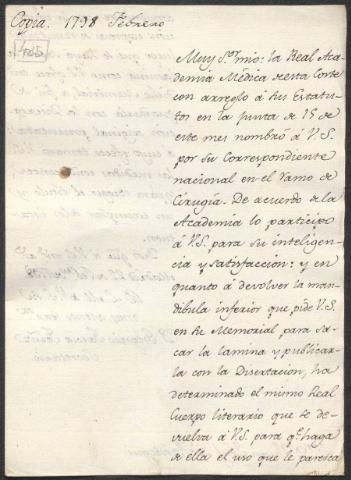 Copia. 1798 Febrero
Muy S.or mio: la Real Aca-
demia Médica de esta Corte
con arreglo á sus Estatu-
tos en la junta de 15 de
este mes nombró á V.S.
por su Correspondiente
nacional en el ramo de
Cirugía. De acuerdo de la
Academia lo participo
á V.S. para su inteligen-
cia y satisfaccion: y en
quanto á devolver la man-
dibula inferior que pide V.S.
en su Memorial para sa-
car la lamina y publicar-
la con la Disertacion, ha
determinado el mismo Real
Cuerpo literario que se de-
vuelva á V.S. para q.e haga
de ella el uso que le paresca